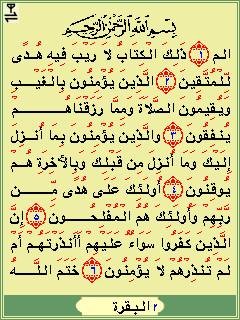 بِسْمِ اللَّهِ الرَّحْمَٰنِ الرَّحِيمِ
الم ١ ذَلِكَ الْكِتَابُ لَا رَيْبَ فِيهِ هُدًى
لِّلْمُتَّقِينَ ٢ الَّذِينَ يُؤْمِنُونَ بِالْغَيْبِ
وَيُقِيمُونَ الصَّلَاةَ وَمِمَّا رَزَقْنَاهُمْ
يُنفِقُونَ ٣ والَّذِينَ يُؤْمِنُونَ بِمَا أُنزِلَ
إِلَيْكَ وَمَا أُنزِلَ مِن قَبْلِكَ وَبِالآخِرَةِ هُمْ
يُوقِنُونَ ٤ أُولَئِكَ عَلَى هُدًى مِّن
رَّبِّهِمْ وَأُولَئِكَ هُمُ الْمُفْلِحُونَ ٥ إِنَّ
الَّذِينَ كَفَرُوا سَوَاءٌ عَلَيْهِمْ أَأَنذَرْتَهُمْ أَمْ
لَمْ تُنذِرْهُمْ لَا يُؤْمِنُونَ ٦ خَتَمَ اللَّهُ
٢ البقرة